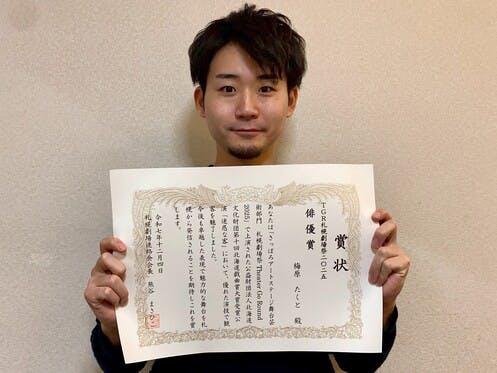 賞状
TGR札幌劇場祭二〇二五
俳優賞
梅原 たくと 殿
あなたは「さっぽろアートステージ舞台芸
術部門 札幌劇場祭 Theater Go Round
2025」で上演された公益財団法人北海道
文化財団第十回北海道戯曲賞大賞受賞公
演「迷惑な客」において、優れた演技で観
客を魅了しました。
今後も卓越した表現で魅力的な舞台を札
幌から発信されることを期待しこれを賞
します。
令和七年十二月四日
札幌劇場連絡会会長 熊谷 まさひこ